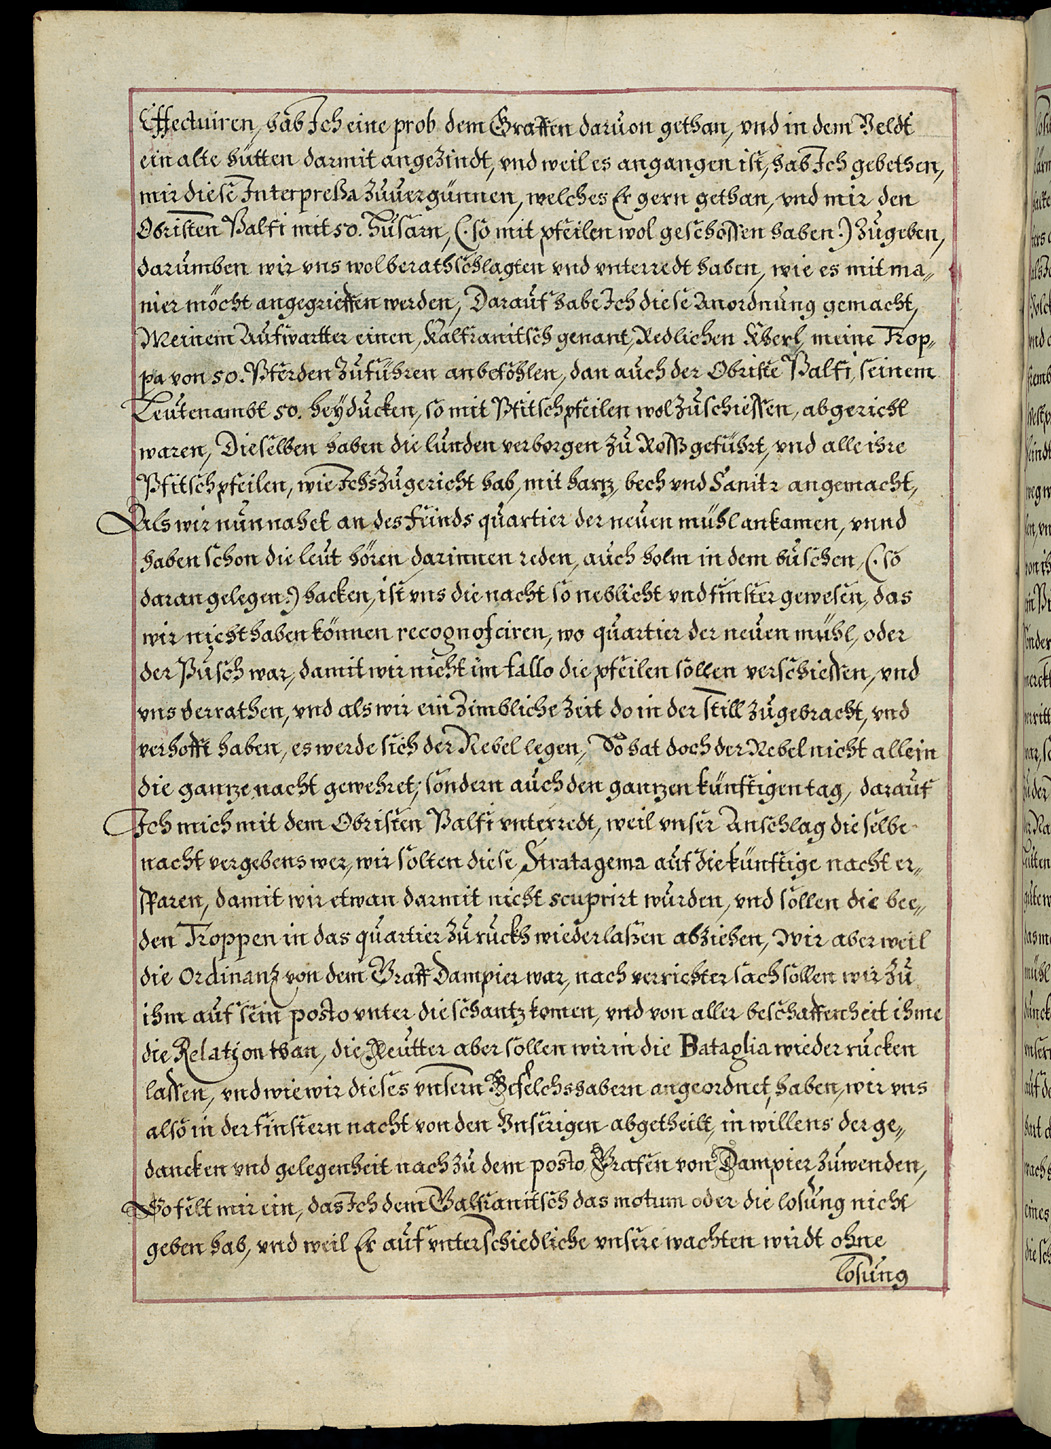 Effectuiren, hab Ich eine prob dem Graffen daruon gethan, vnd in dem Veldt
ein alte hütten darmit angezindt, vnd weil es angangen ist, hab Ich gebethen,
mir diese Interpressa zuuergünnen, welches Er gern gethan, vnd mir den
Obristen Palfi mit 50. Husarn, (: so mit pfeilen wol geschossen haben :) zugeben,
darumben wir vns wol berathschlagten vnd vnterredt haben, wie es mit ma„
nier möcht angegrieffen werden, Darauf habe Ich diese Anordnung gemacht,
Meinem Aufwartter einen, Kalkanitsch genant, Redlichen Kherl, meine Trop„
pa von 50. Pferden zuführen anbefohlen, dan auch der Obriste Palfi, seinem
Leutenambt 50. heyducken, so mit Pfitschpfeilen wol zuschiessen, abgericht
waren, Dieselben haben die lunden verborgen zu Ross geführt, vnd alle ihre
Pfitschpfeilen, wie Ichs zugericht hab, mit hartz, bech vnd Sanitr angemacht,
Als wir nun nahet an des feinds quartier der neuen mühl ankamen, vnnd
haben schon die leut hören darinnen reden, auch holm in dem buschen, (: so
daran gelegen :) hacken, ist vns die nacht so neblicht vnd finster gewesen, das
wir nicht haben können recognosciren, wo quartier der neuen mühl, oder
der Pusch war, damit wir nicht im fallo die pfeilen sollen verschiessen, vnd
vns verrathen, vnd als wir ein zimbliche zeit do in der still zugebracht, vnd
verhofft haben, es werde sich der Nebel legen, So hat doch der Nebel nicht allein
die gantze nacht gewehret, sondern auch den gantzen künftigen tag, darauf
Ich mich mit dem Obristen Palfi vnterredt, weil vnser Anschlag dieselbe
nacht vergebens wer, wir solten diese Stratagema auf die künftige nacht er„
sparen, damit wir etwan darmit nicht scuprirt wurden, vnd sollen die bee„
den Troppen in das quartier zu ruckh wieder lassen abziehen, Wir aber weil
die Ordinanz von dem Graff Dampier war, nach verrichter sach sollen wir zu
ihm auf sein posto vnter die schantz komen, vnd von aller beschaffenheit ihme
die Relation than, die Reutter aber sollen wir in die Bataglia wieder rucken
lassen, vnd wie wir dieses vnsern Befelchshabern angeordnet, haben, wir vns
also in der finstern nacht von den Vnserigen abgetheilt, in willens der ge„
dancken vnd gelegenheit nach zu dem posto Grafen von Dampier zuwenden,
So felt mir ein, das Ich dem Kalkanitsch das motum oder die losung nicht
geben hab, vnd weil Er auf vnterschiedliche vnsere wachten wirdt ohne
losung